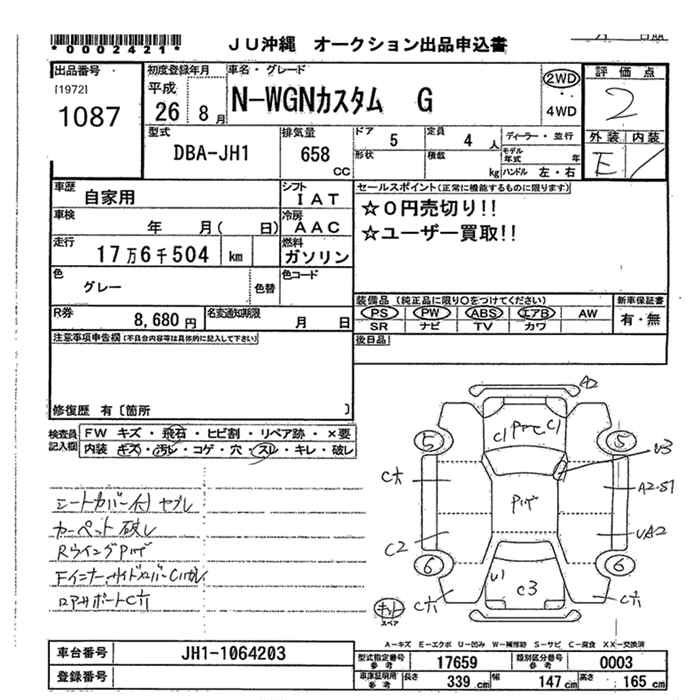 *0002421*
JU沖縄 オークション出品申込書
出品番号
[1972]
1087
初度登録年月
平成
26 8月
車名・グレード
N-WGNカスタム G
2WD
4WD
評価点
2
外装 内装
E
型式
DBA-JH1
排気量
658
CC
ドア 5
定員 4 人
形状
積載 kg
ディーラー・並行
モデル年式 年
ハンドル 左・右
車歴
自家用
シフト
IAT
車検
年 月( 日)
冷房
AAC
走行
17万6千504 km
燃料
ガソリン
色
グレー
色替
色コード
R券
8,680円
名変通知期限
月 日
セールスポイント(正常に機能するものに限ります)
☆0円売切り!!
☆ユーザー買取!!
装備品 (純正品に限り○をつけてください)
PS PW ABS エアB AW
SR ナビ TV カワ
新車保証書
有・無
後日品
注意事項申告欄(不具合内容等は具体的に記入して下さい)
修復歴 有 〔箇所 〕
検査員記入欄
FW キズ・飛石・ヒビ割・リペア跡・×要
内装 キズ・汚レ・コゲ・穴・スレ・キレ・破レ
シートカバー穴 ヤブレ
カーペット破レ
A2
C1
C1
5
5
U3
C穴
A2・S1
C2
UA2
6
6
U1
C3
C穴
C穴
キット
スペア
A-キズ E-エクボ U-凹み W-補修跡 S-サビ C-腐食 XX-交換済
車台番号
JH1-1064203
登録番号
型式指定番号 参考
17659
類別区分番号 参考
0003
車庫証明用 参考
長さ 339cm
幅 147cm
高さ 165cm